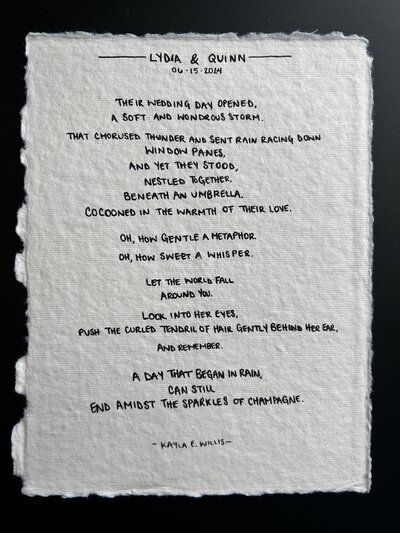 LYDIA & QUINN
06·15·2024
THEIR WEDDING DAY OPENED,
A SOFT AND WONDROUS STORM.
THAT CHORUSED THUNDER AND SENT RAIN RACING DOWN
WINDOW PANES,
AND YET THEY STOOD,
NESTLED TOGETHER.
BENEATH AN UMBRELLA.
COCOONED IN THE WARMTH OF THEIR LOVE.
OH, HOW GENTLE A METAPHOR.
OH, HOW SWEET A WHISPER.
LET THE WORLD FALL
AROUND YOU.
LOOK INTO HER EYES,
PUSH THE CURLED TENDRIL OF HAIR GENTLY BEHIND HER EAR,
AND REMEMBER.
A DAY THAT BEGAN IN RAIN,
CAN STILL
END AMIDST THE SPARKLES OF CHAMPAGNE.
- KAYLA E. WILLIS-